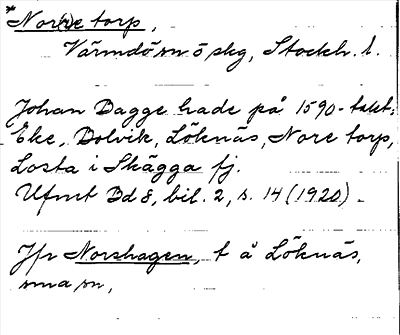 *Nor(r)e torp,
Värmdö sn ö skg, Stockh. l.
Johan Dagge hade på 1590-talet:
Eke, Dolvik, Löknäs, Nore torp,
Losta i Skägga fj.
Ufmt Bd 8, bil. 2, s. 14 (1920).
Jfr Norshagen, t å Löknäs,
sma sn,